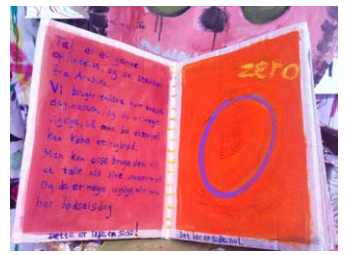 Tal er en gamle
opfindelse, og de stammer
fra Arabien.
Vi bruger tallene hver eneste
dag næsten, og de er meget
vigtige, så man for eksempel
kan købe et rugbrød.
Man kan også bruge dem til
at tælle alle sine sommerfugle
Og de er meget vigtige, når man
har fødselsdag
Dette er ligesom sidst!
zero
Det her er side nul